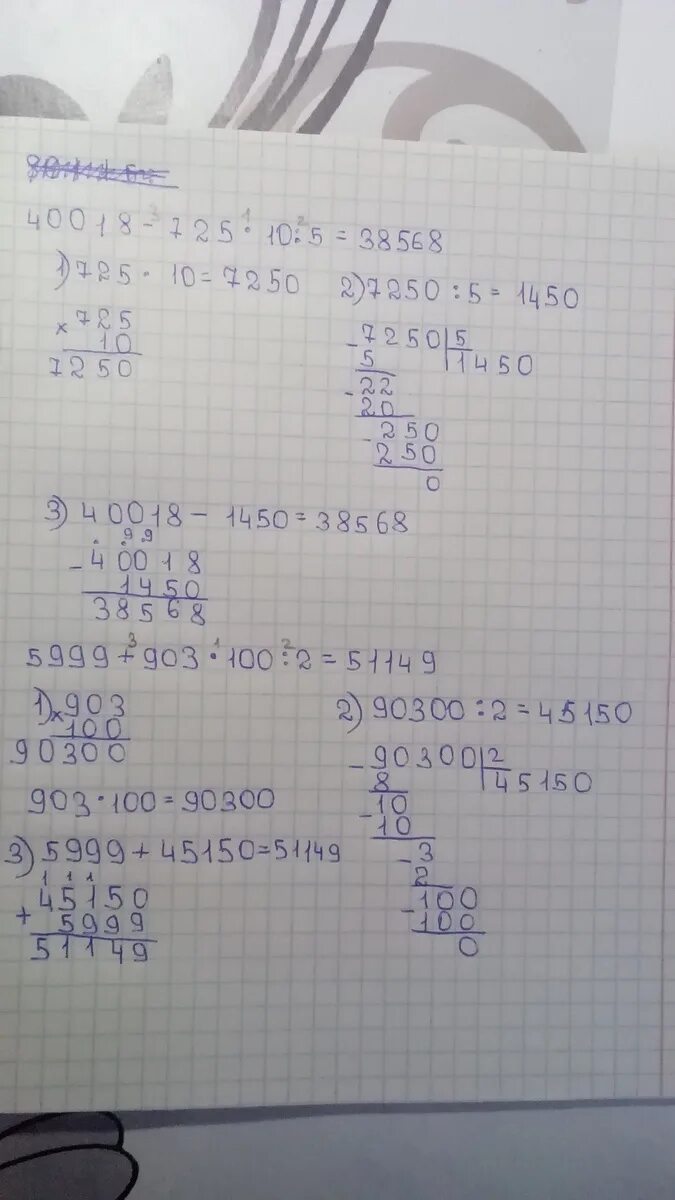 40018 - 725 · 10 : 5 = 38568
3 1 2
1) 725 · 10 = 7250
× 725
10
7250
2) 7250 : 5 = 1450
- 7250 | 5
5 1450
- 22
20
- 250
250
0
3) 40018 - 1450 = 38568
. . 9 9
- 40018
1450
38568
3 1 2
5999 + 903 · 100 : 2 = 51149
1) × 903
100
90300
903 · 100 = 90300
2) 90300 : 2 = 45150
- 90300 | 2
8 45150
- 10
10
- 3
2
- 100
100
0
3) 5999 + 45150 = 51149
1 1 1
45150
+ 5999
51149